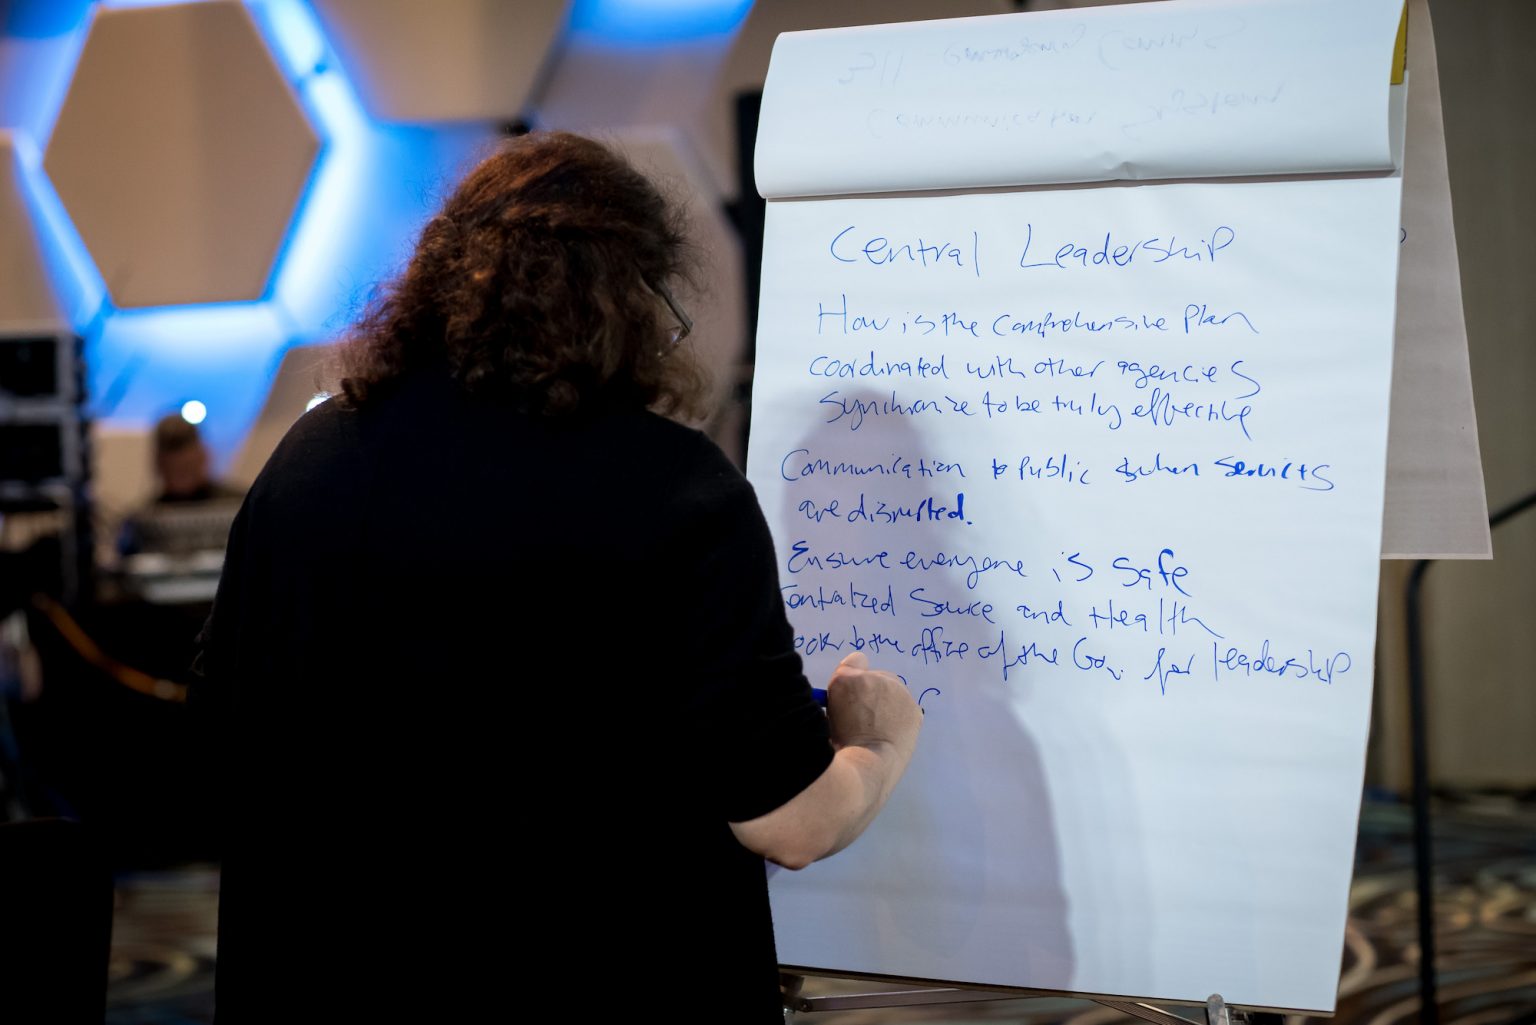 Central Leadership
How is the comprehensive Plan
coordinated with other agencies
Synchronize to be truly effective
Communication to Public when Services
are disrupted.
Ensure everyone is safe
Centralized Source and Health
to the office of the Gov. for leadership